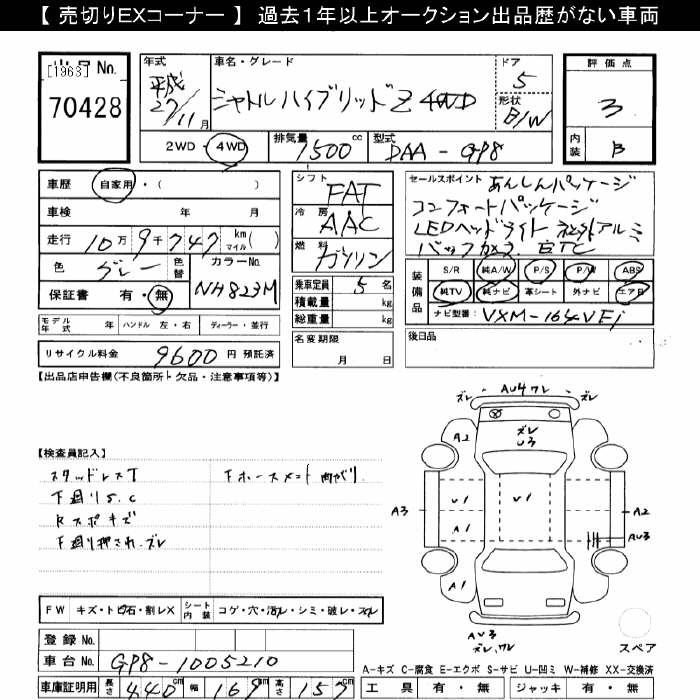 【 売切りEXコーナー 】 過去１年以上オークション出品歴がない車両
[1963] No.
70428
年式 平成 27/11月
車名・グレード シャトルハイブリッドZ 4WD
ドア 5
形状 B/W
評価点 3
内装 B
2WD・4WD
排気量 1500 cc
型式 DAA-GP8
車歴 自家用・( )
車検 年 月
走行 10万9千747 km マイル( )
色 グレー 色替 カラーNo. NH823M
保証書 有・無
シフト FAT
冷房 AAC
燃料 ガソリン
乗車定員 5 名
積載量 kg
総重量 kg
名変期限 月 日
セールスポイント あんしんパッケージ
コンフォートパッケージ
LEDヘッドライト 社外アルミ
バックカメラ ETC
装備品 S/R 純A/W P/S P/W ABS
純TV 純ナビ 革シート 外ナビ エアB
ナビ型番：VXM-164VFi
後日品
モデル年式 年 ハンドル 左・右 ディーラー・並行
リサイクル料金 9600 円 預託済
【出品店申告欄(不良箇所ト欠品・注意事項等)】
【検査員記入】
スタッドレスT
下廻りS.C
Rスポキズ
下廻り押され、ズレ
Fホースメント曲がり
FW キズ・トビ石・割レX シート内装 コゲ・穴・汚レ・シミ・破レ・スレ
登録 No.
車台 No. GP8-1005210
車庫証明用 長さ 440 cm 幅 169 cm 高さ 157 cm
ズレ AU4ワレ ズレ
ズレ
U3
A2
A1
A3
U1
U1
A1
A2
AU3
A1
AU3
ズレ、ワレ
スペア
A-キズ C-腐食 E-エクボ S-サビ U-凹ミ W-補修 XX-交換済
工具 有・無 ジャッキ 有・無